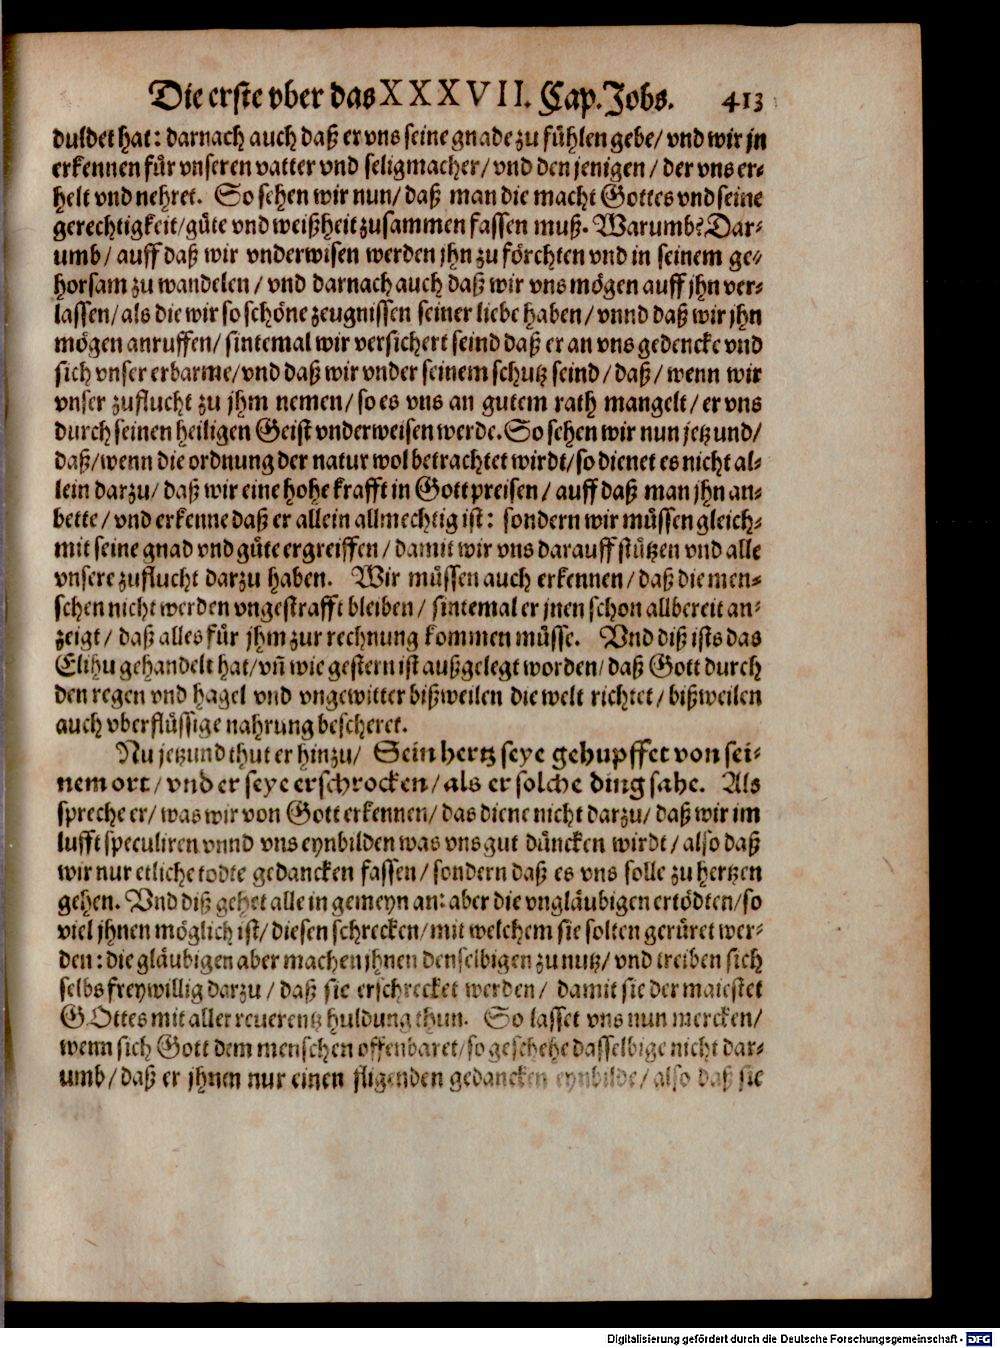 Die erste vber das XXXVII. Cap. Jobs. 413
duldet hat: darnach auch daß er vns seine gnade zu fühlen gebe/ vnd wir jn
erkennen für vnseren vatter vnd seligmacher/ vnd den jenigen/ der vns er-
helt vnd nehret. So sehen wir nun/ daß man die macht Gottes vnd seine
gerechtigkeit/ güte vnd weißheit zusammen fassen muß. Warumb? Dar-
umb/ auff daß wir vnderwisen werden jhn zu förchten vnd in seinem ge-
horsam zu wandelen/ vnd darnach auch daß wir vns mögen auff jhn ver-
lassen/ als die wir so schöne zeugnissen seiner liebe haben/ vnnd daß wir jhn
mögen anruffen/ sintemal wir versichert seind daß er an vns gedencke vnd
sich vnser erbarme/ vnd daß wir vnder seinem schutz seind/ daß/ wenn wir
vnser zuflucht zu jhm nemen/ so es vns an gutem rath mangelt/ er vns
durch seinen heiligen Geist vnderweisen werde. So sehen wir nun jetzund/
daß/ wenn die ordnung der natur wol betrachtet wirdt/ so dienet es nicht al-
lein darzu/ daß wir eine hohe krafft in Gott preisen/ auff daß man jhn an-
bette/ vnd erkenne daß er allein allmechtig ist: sondern wir müssen gleich-
mit seine gnad vnd güte ergreiffen/ damit wir vns darauff stützen vnd alle
vnsere zuflucht darzu haben. Wir müssen auch erkennen/ daß die men-
schen nicht werden vngestrafft bleiben/ sintemal er jnen schon allbereit an-
zeigt/ daß alles für jhm zur rechnung kommen müsse. Vnd diß ists das
Elihu gehandelt hat/ vn̄ wie gestern ist außgelegt worden/ daß Gott durch
den regen vnd hagel vnd vngewitter bißweilen die welt richtet/ bißweilen
auch vberflüssige nahrung bescheret.
Nu jetzund thut er hinzu/ Sein hertz seye gehupffet von sei-
nem ort/ vnd er seye erschrocken/ als er solche ding sahe. Als
spreche er/ was wir von Gott erkennen/ das diene nicht darzu/ daß wir im
lufft speculiren vnnd vns eynbilden was vns gut düncken wirdt/ also daß
wir nur etliche todte gedancken fassen/ sondern daß es vns solle zu hertzen
gehen. Vnd diß gehet alle in gemeyn an: aber die vngläubigen ertödten/ so
viel jhnen möglich ist/ diesen schrecken/ mit welchem sie solten gerüret wer-
den: die gläubigen aber machen jhnen denselbigen zu nutz/ vnd treiben sich
selbs freywillig darzu/ daß sie erschrecket werden/ damit sie der maiestet
GOttes mit aller reuerentz huldung thun. So lasset vns nun mercken/
wenn sich Gott dem menschen offenbaret/ so geschehe dasselbige nicht dar-
umb/ daß er jhnen nur einen fligenden gedancken eynbilde/ also daß sie
Digitalisierung gefördert durch die Deutsche Forschungsgemeinschaft - DFG